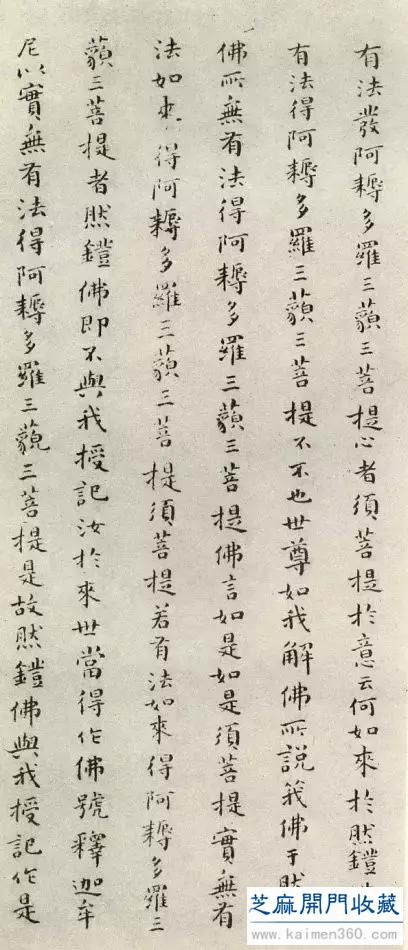 有法發阿耨多羅三藐三菩提心者須菩提於意云何如來於然鐙
有法得阿耨多羅三藐三菩提不不也世尊如我解佛所說義佛于然
佛所無有法得阿耨多羅三藐三菩提佛言如是如是須菩提實無有
法如來得阿耨多羅三藐三菩提須菩提若有法如來得阿耨多羅三
藐三菩提者然鐙佛即不與我授記汝於來世當得作佛號釋迦牟
尼以實無有法得阿耨多羅三藐三菩提是故然鐙佛與我授記作是
芝麻開門收藏
www.kaimen360.com